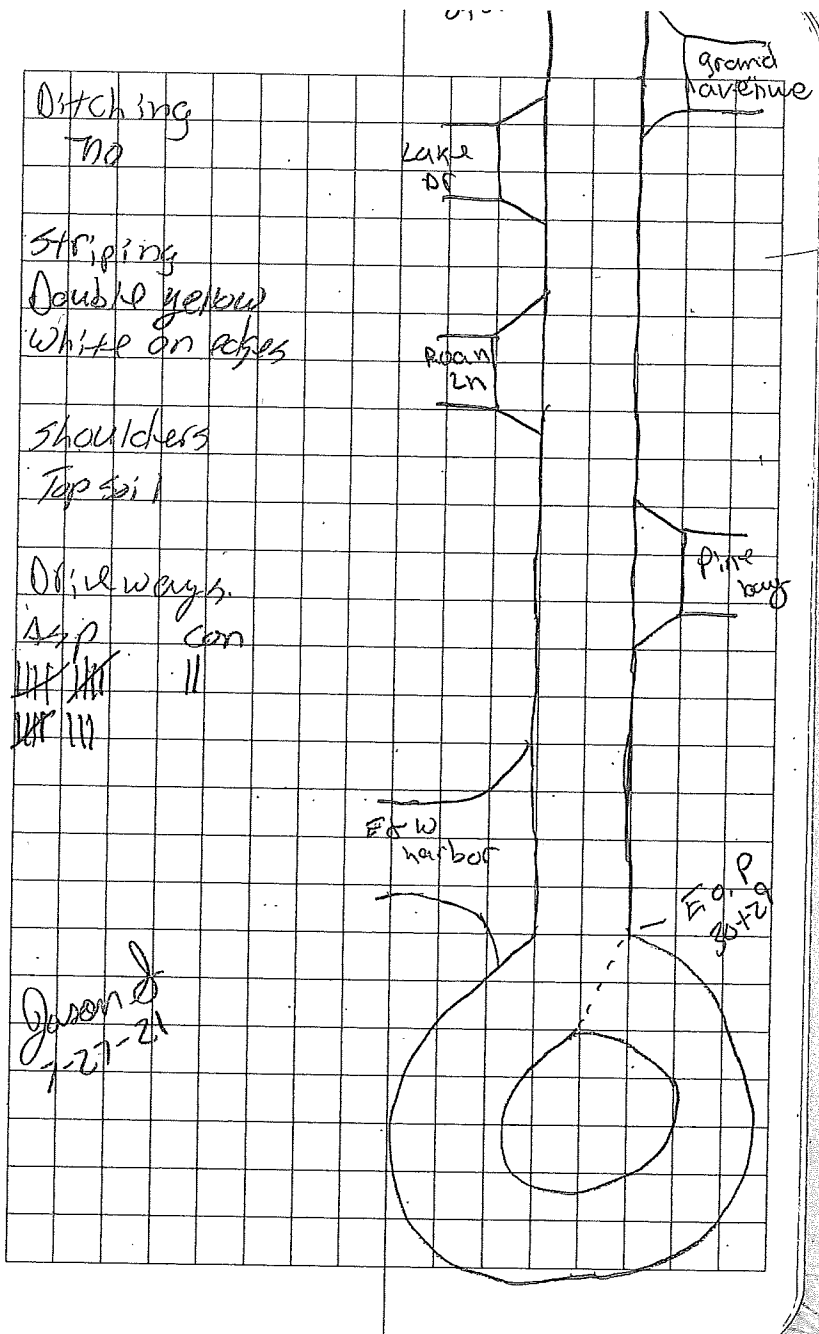 Ditching
no
Striping
Double yellow
White on edges
Shoulders
Top soil
Driveways.
Asp con
Jason J
7-27-21
grand
avenue
Lake
Dr
Roan
Ln
Pine
bay
E & W
harbor
E.O.P
30+29